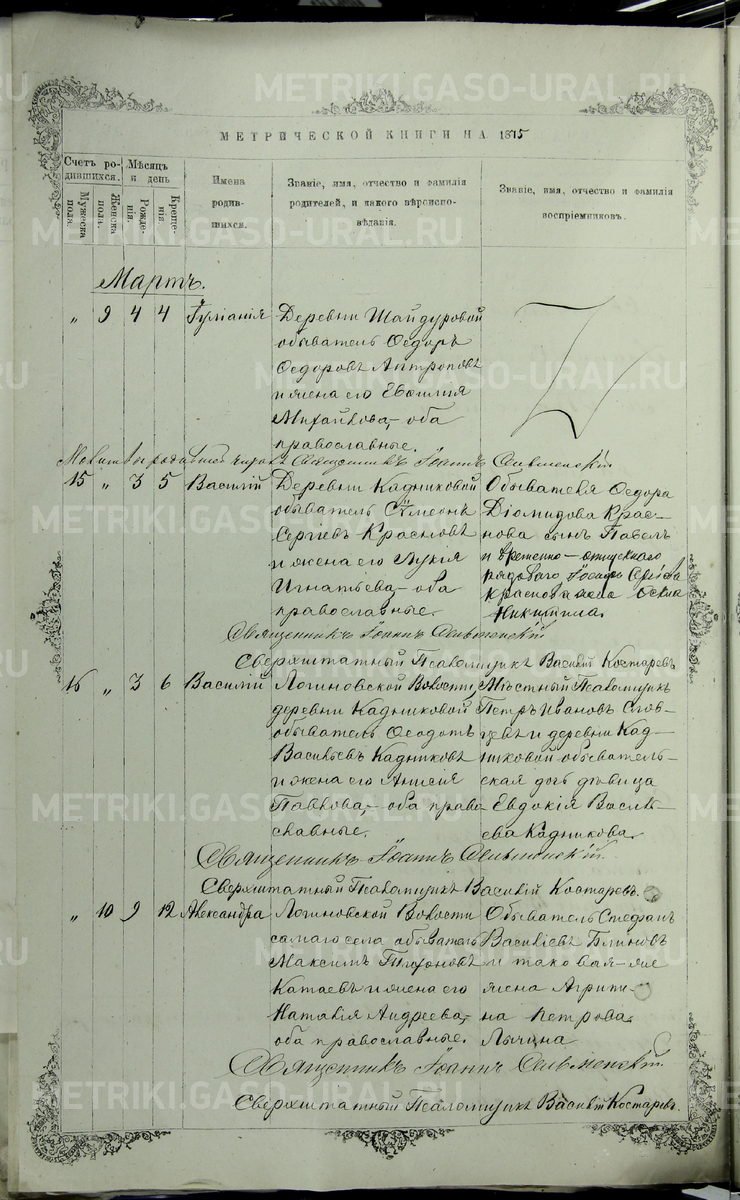 МЕТРИЧЕСКОЙ КНИГИ НА 1875
Счетъ родившихся.
Мужеска полъ.
Женска полъ.
Мѣсяцъ и день
Рожденія.
Крещенія.
Имена родившихся.
Званіе, имя, отчество и фамилія родителей, и какого вѣроисповѣданія.
Званіе, имя, отчество и фамилія воспріемниковъ.
Мартъ.
„ 9 4 4 Іуліанія
Деревни Шайдуровой
обыватель Ѳедоръ
Ѳедоровъ Антроповъ
и жена его Евфимія
Михайлова, оба
православные.
Священникъ Іоаннъ
15 „ 3 5 Василій
Деревни Кадниковой
обыватель Сѷмеонъ
Сергіевъ Красновъ
и жена его Лукія
Игнатьева, оба
православные.
Обывателя Ѳедора
Діомидова Крас-
нова сынъ Павелъ
и временно-отпускнаго
рядоваго Сергіева
Краснова жена
Никитина.
Священникъ Іоаннъ
Сверхштатный Псаломщикъ Василій Костаревъ
16 „ 3 6 Василій
Логиновской Волости
деревни Кадниковой
обыватель Ѳеодотъ
Васильевъ Кадниковъ
и жена его Анисія
Павлова, оба право-
славные.
Мѣстный Псаломщикъ
Петръ Ивановъ Слов-
цевъ и деревни Кад-
никовой обыватель-
ская дочь дѣвица
Евдокія Василь-
ева Кадникова.
Священникъ Іоаннъ
Сверхштатный Псаломщикъ Василій Костаревъ.
„ 10 9 12 Александра
Логиновской Волости
самаго села обыватель
Максимъ Тихоновъ
Катаевъ и жена его
Наталія Андреева,
оба православные.
Обыватель Стефанъ
Василіевъ Блиновъ
и таковая-же
жена Агрипи-
на Петрова
Лычина
Священникъ Іоаннъ
Сверхштатный Псаломщикъ Василій Костаревъ.
METRIKI.GASO-URAL.RU